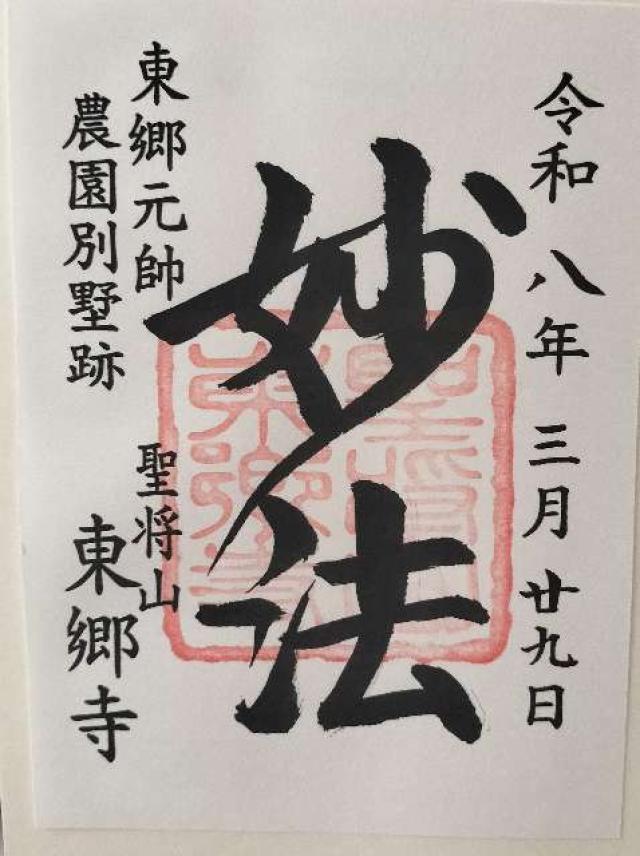 令和八年三月廿九日
妙法
東郷元帥
農園別墅跡
聖将山
東郷寺
聖将山
東郷寺